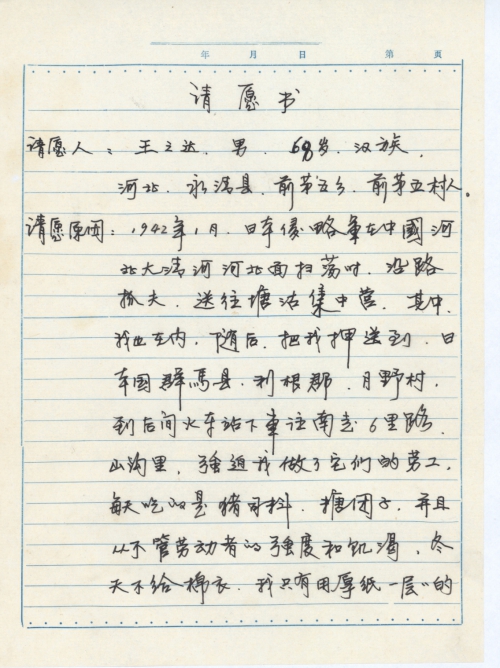 年 月 日 第 页
请愿书
请愿人：王之达．男．68岁．汉族．
河北．永清县．前第五乡．前第五村人。
请愿原因：1942年1月．日本侵略軍在中國河
北大清河河北面扫荡时．沿路
抓夫．送往塘沽集中营．其中．
我也在内，随后．把我押送到．日
本国群馬县．利根郡．月野村．
到后闲火车站下車往南走6里路．
山沟里，强迫我做了它们的劳工，
每天吃的是猪司料．糖团子．并且
从不管劳动者的强度和饥渴，冬
天不给棉衣．我只有用厚纸一层〃的